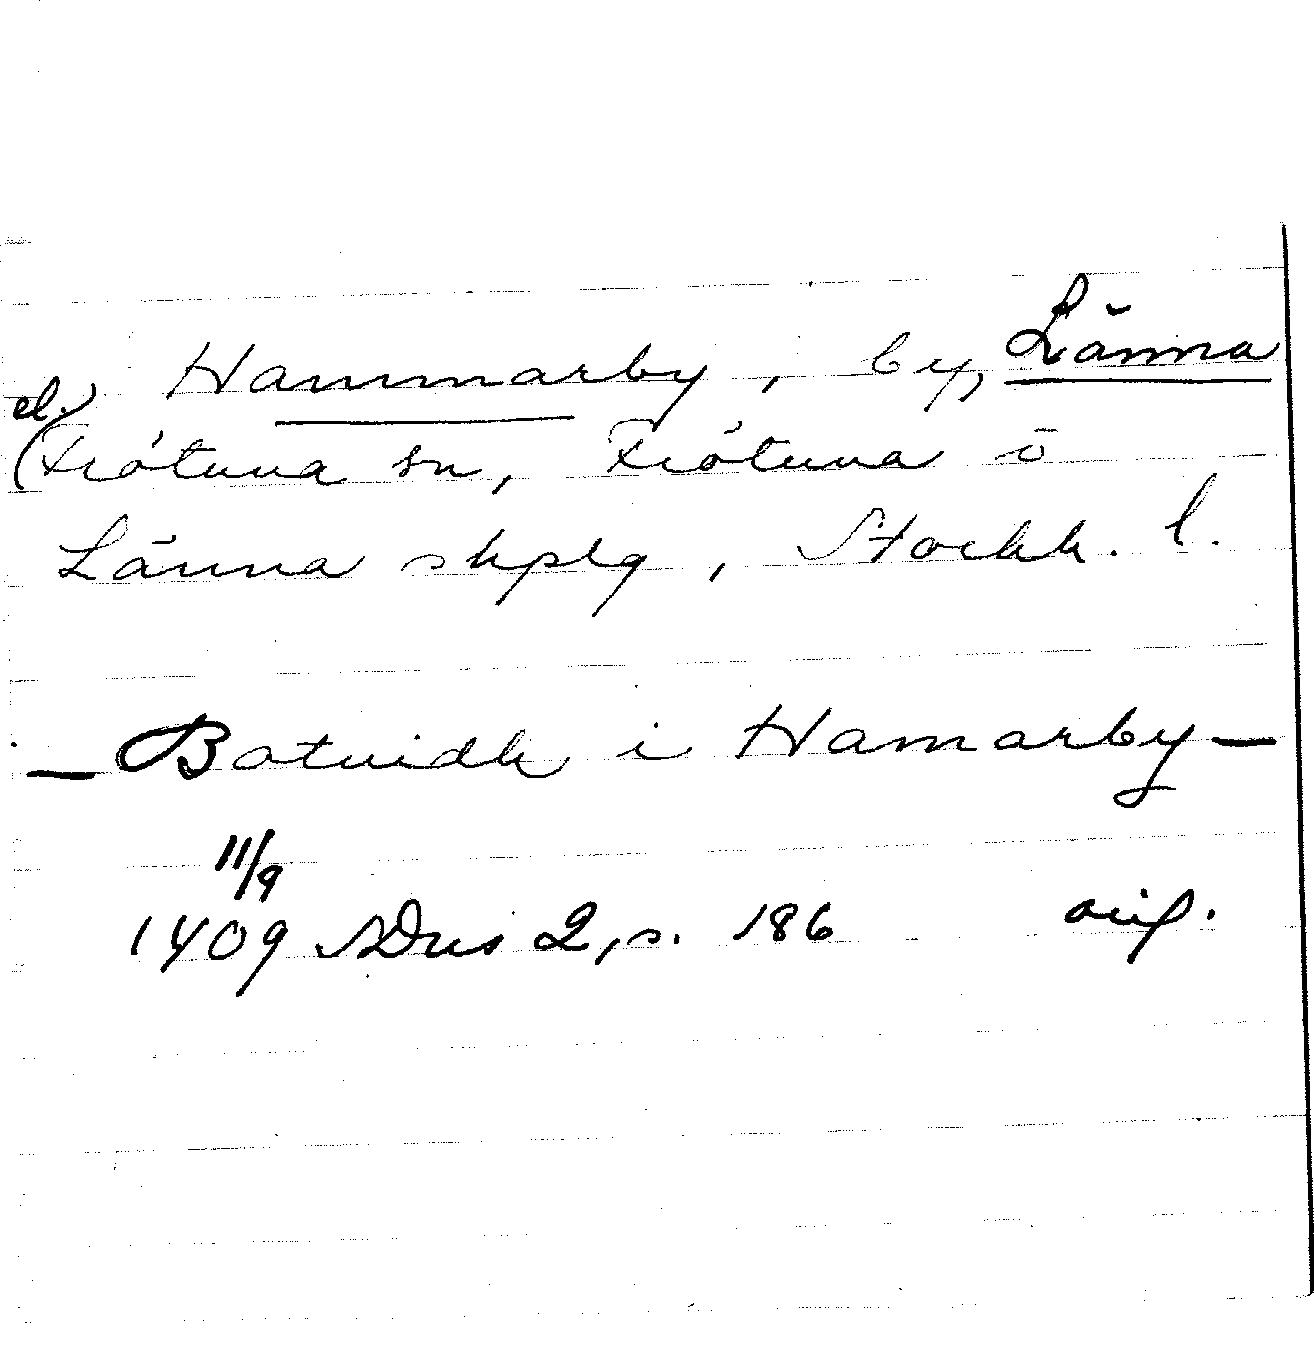 Hammarby, by, Länna
el. (Frötuna sn, Frötuna o
Länna skplg, Stockh. l.
— Botvidh i Hamarby —
11/9
1409 SDns 2, s. 186 orig.